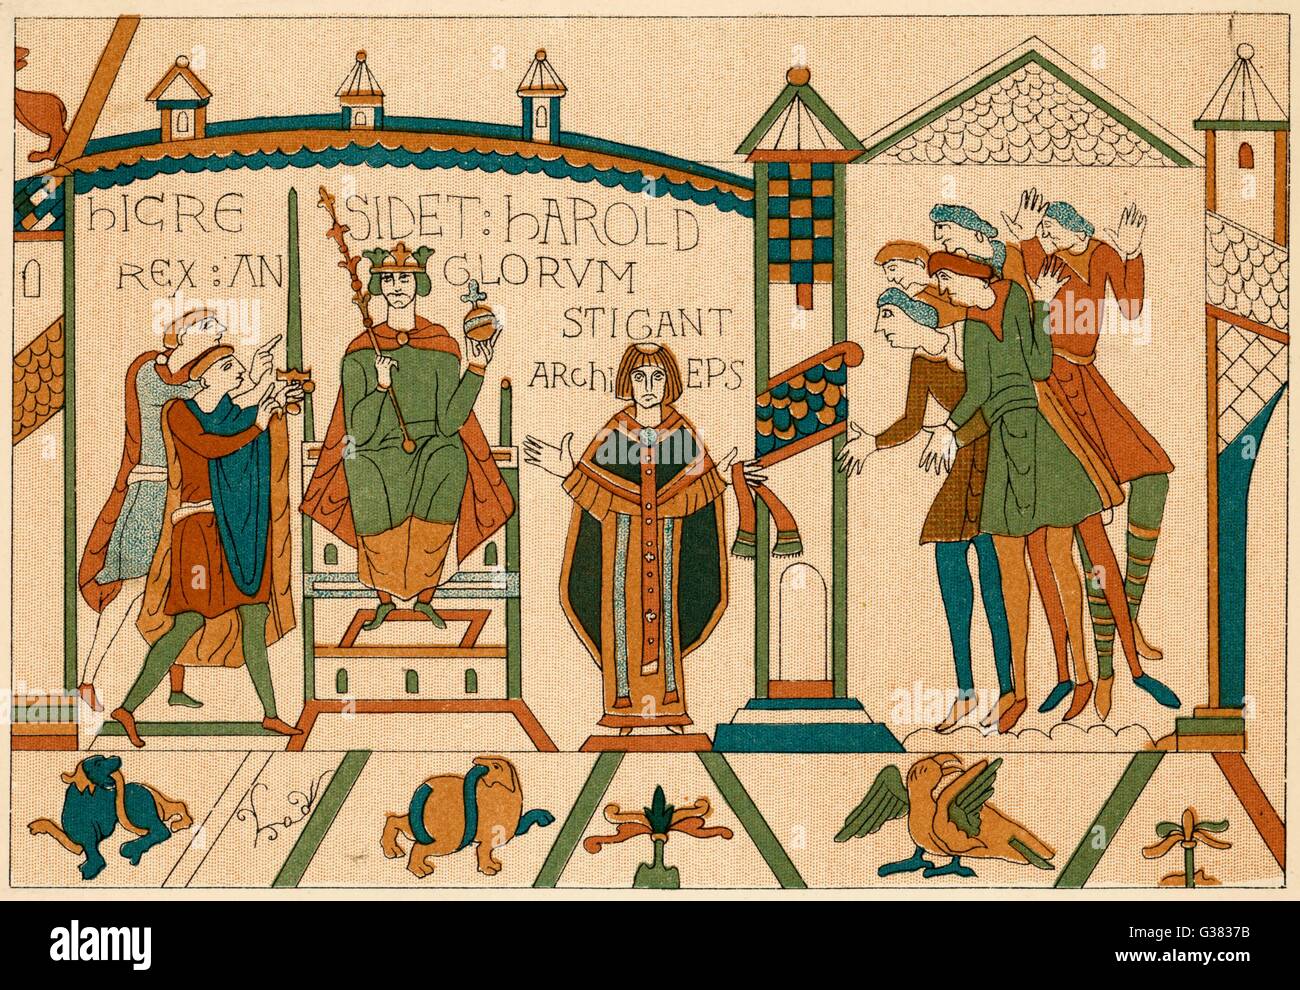 hIC RE SIDET : hAROLD
REX : AN GLORVM
STIGANT
ARChI EPS
alamy
Image ID: G3837B
www.alamy.com